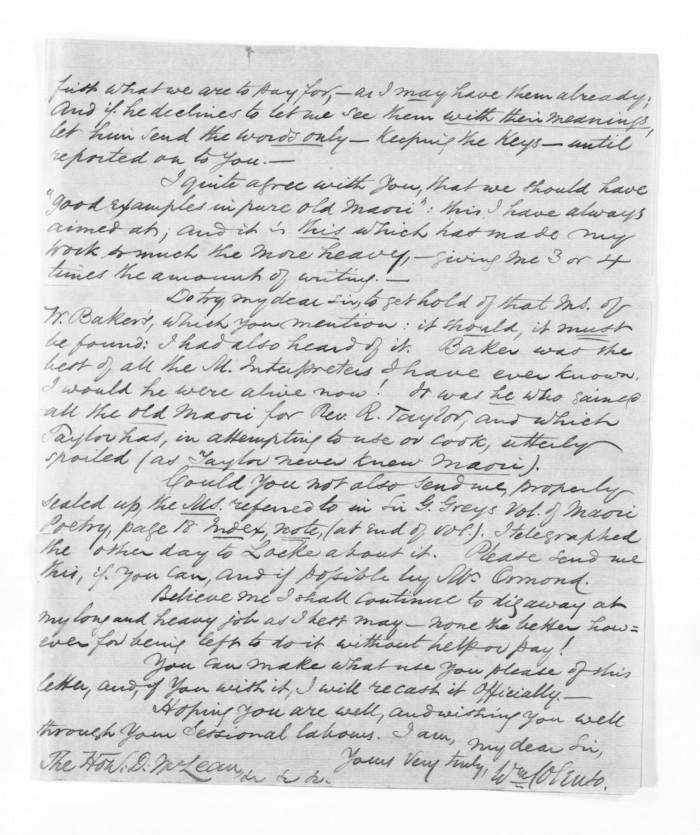 first what we are to pay for, – as I may have them already;
And if he declines to let me see them with their meanings,
let him send the words only – keeping the Keys – until
reported on to You. –
I quite agree with You, that we should have
"good examples in pure old Maori": this I have always
aimed at; and it is this which has made my
work so much the more heavy, – giving me 3 or 4
times the amount of writing. –
Do try, my dear Sir, to get hold of that Ms. of
W. Baker's, which you mention: it should, it must
be found: I had also heard of it. Baker was the
best of all the M. Interpreters I have ever known.
I would he were alive now! It was he who gained
all the old Maori for Rev. R. Taylor, and which
Taylor has, in attempting to use or cook, utterly
spoiled (as Taylor never knew Maori).
Could You not also send me, properly
sealed up, the Ms. referred to in Sir G. Greys Vol. of Maori
Poetry, page 18 Index, note, (at end of vol.). I telegraphed
the other day to Locke about it. Please send me
this, if You can, and if possible by Mr. Ormond.
Believe me I shall continue to dig away at
my long and heavy job as I best may – none the better how=
ever for being left to do it without help or pay!
You can make what use You please of this
letter, and, if You wish it, I will recast it Officially –
Hoping You are well, and wishing You well
through Your Sessional labours. I am, my dear Sir,
Yours Very truly, Wm Colenso.
The Honl. D. McLean,
&c &c &c.